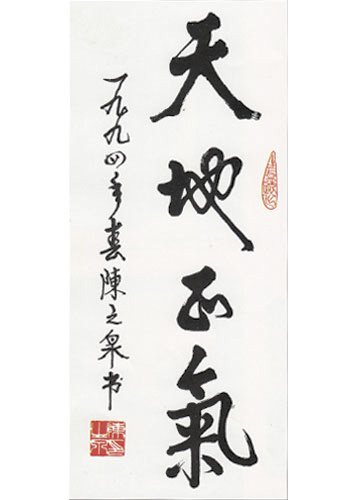 天地正氣
一九九四年春陳之泉书